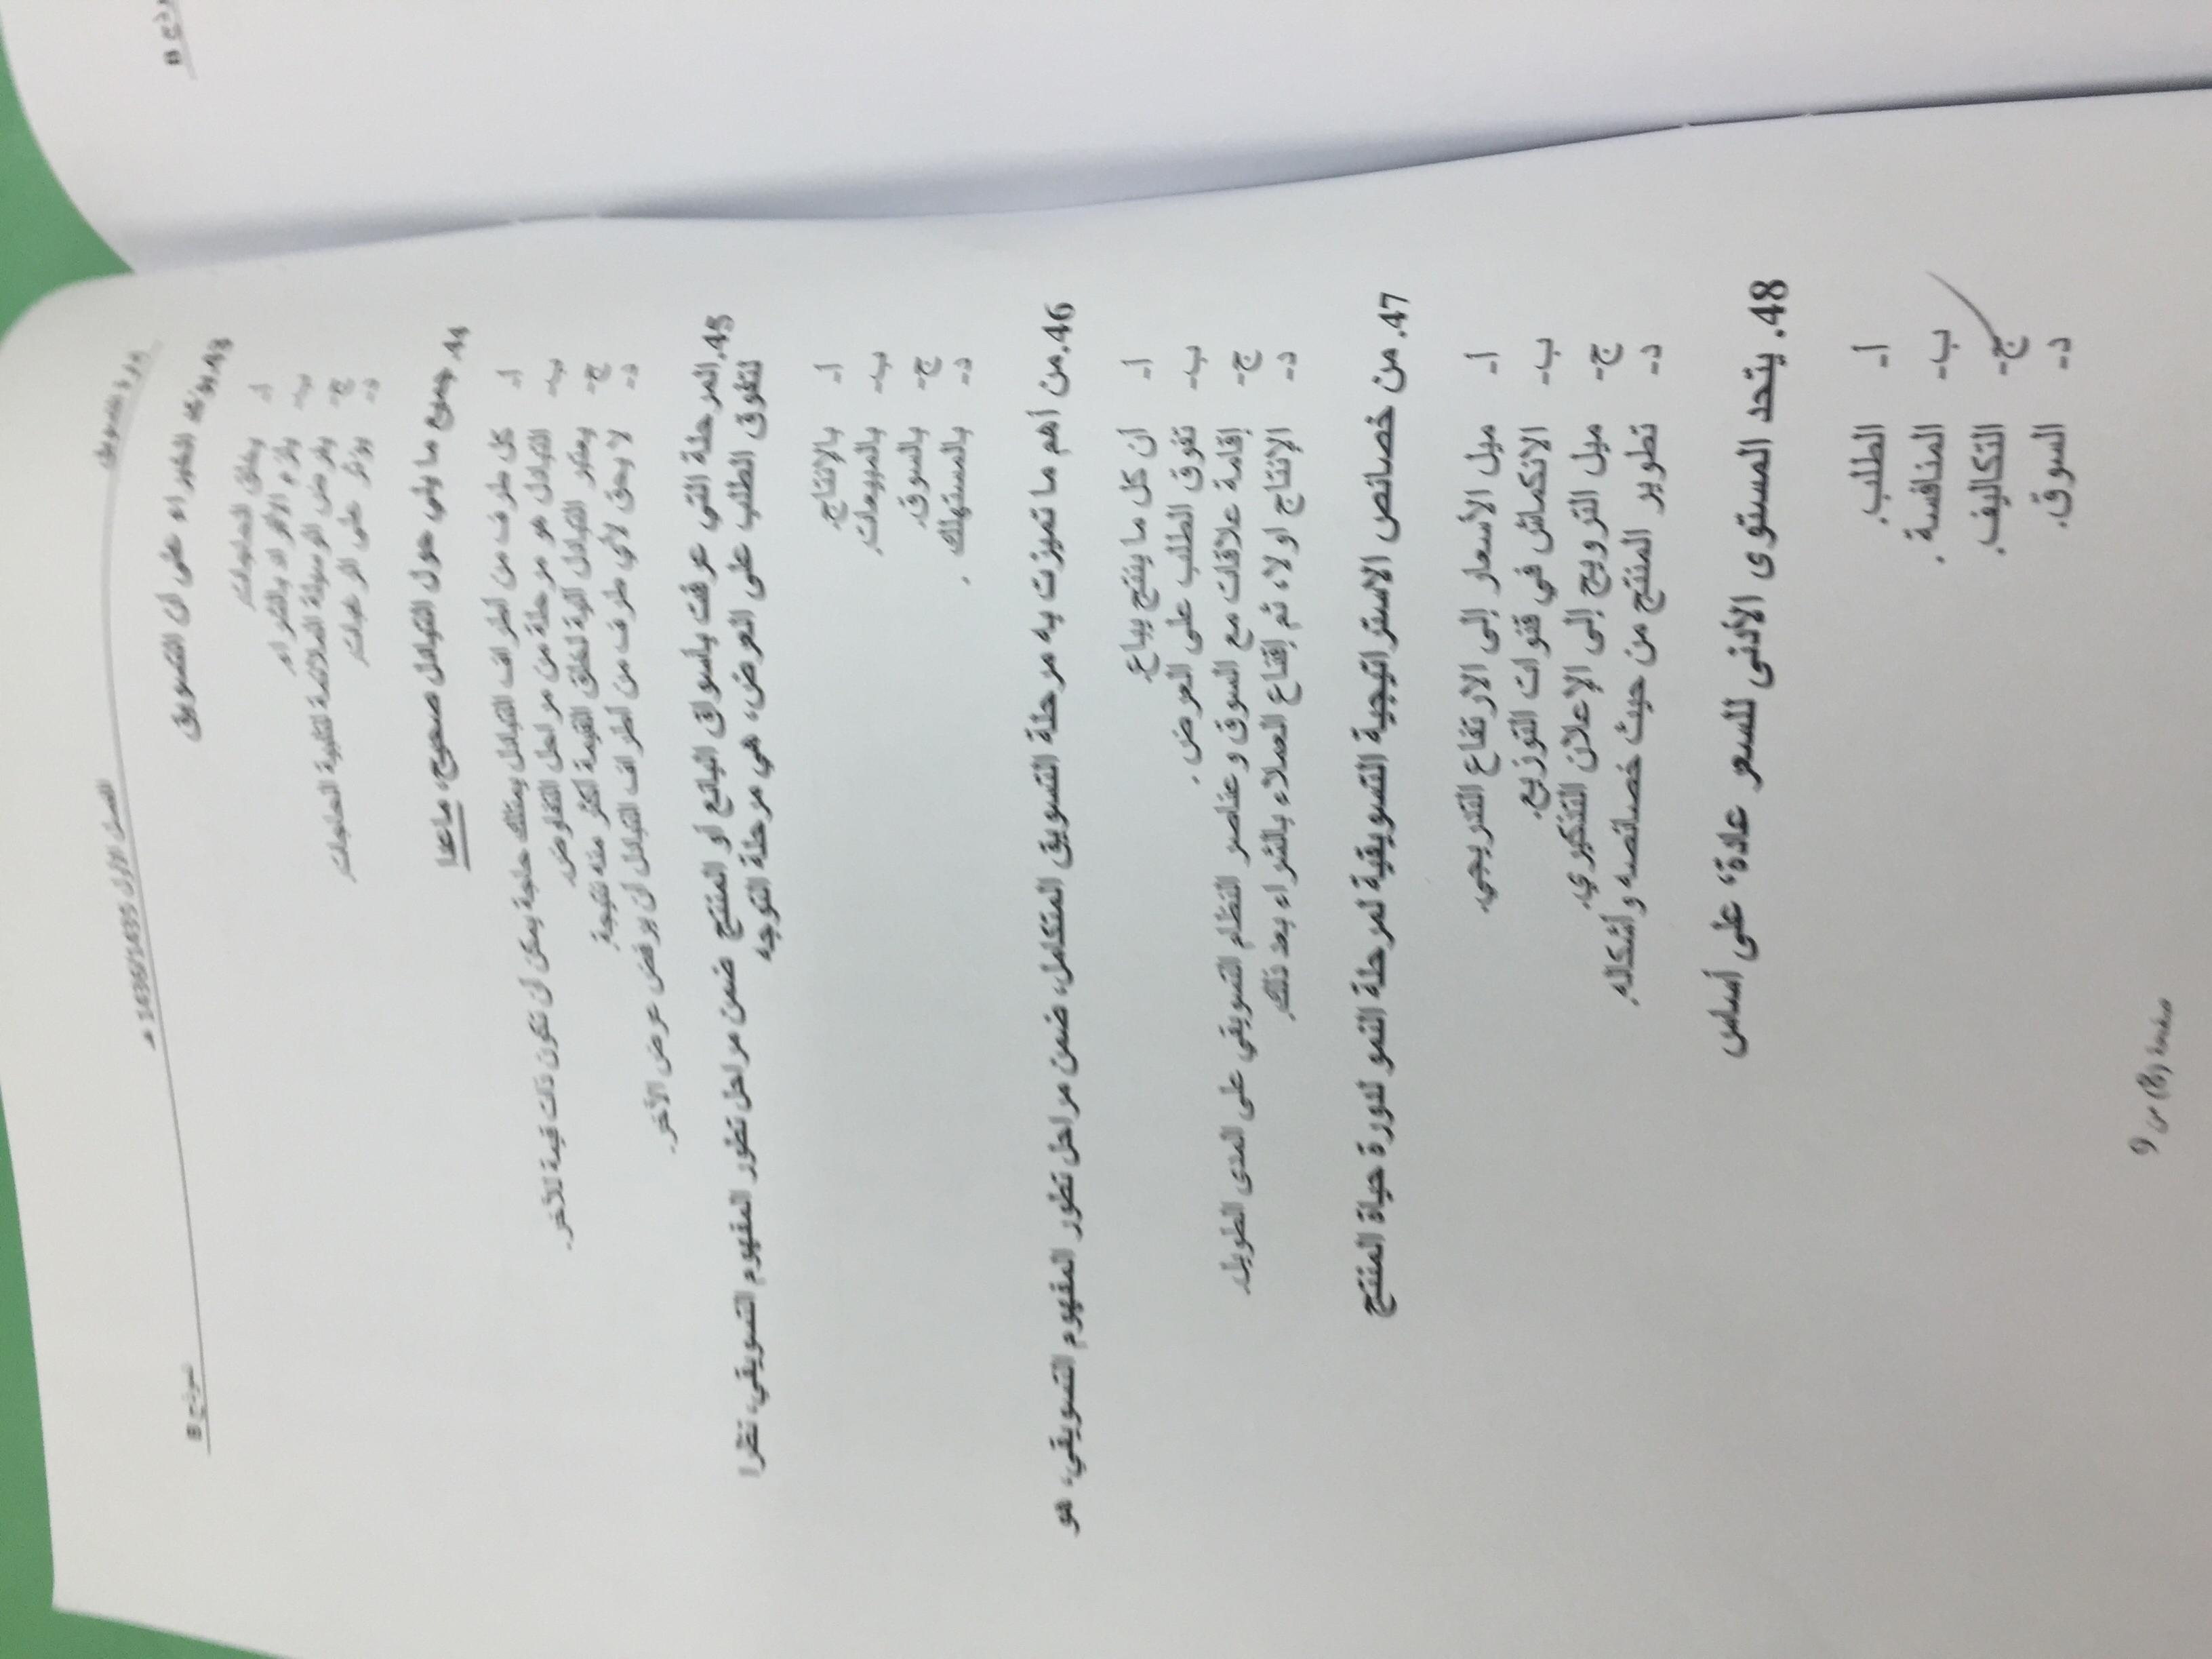 مبادئ التسويق
الفصل الأول 1436/1435 هـ
نموذج B
43. يؤكد الخبراء على أن التسويق
أ- يخلق الحاجات.
ب- يلزم الأفراد بالشراء.
ج- يعرض الوسيلة الملائمة لتلبية الحاجات.
د- يؤثر على الرغبات.
44. جميع ما يلي حول التبادل صحيح، ماعدا
أ- كل طرف من أطراف التبادل يمتلك حاجة يمكن أن تكون ذات قيمة للآخر.
ب- التبادل هو مرحلة من مراحل التفاوض.
ج- يعتبر التبادل آلية لخلق القيمة أكثر منه نتيجة.
د- لا يحق لأي طرف من أطراف التبادل أن يرفض عرض الآخر.
45. المرحلة التي عرفت بأسواق البائع أو المنتج ضمن مراحل تطور المفهوم التسويقي، نظرا
لتفوق الطلب على العرض، هي مرحلة التوجه
أ- بالإنتاج.
ب- بالمبيعات.
ج- بالسوق.
د- بالمستهلك .
46. من أهم ما تميزت به مرحلة التسويق المتكامل، ضمن مراحل تطور المفهوم التسويقي، هو
أ- أن كل ما ينتج يباع.
ب- تفوق الطلب على العرض .
ج- إقامة علاقات مع السوق وعناصر النظام التسويقي على المدى الطويل.
د- الإنتاج اولا، ثم إقناع العملاء بالشراء بعد ذلك.
47. من خصائص الاستراتيجية التسويقية لمرحلة النمو لدورة حياة المنتج
أ- ميل الأسعار إلى الارتفاع التدريجي.
ب- الانكماش في قنوات التوزيع.
ج- ميل الترويج إلى الإعلان التذكيري.
د- تطوير المنتج من حيث خصائصه وأشكاله.
48. يتحد المستوى الأدنى للسعر عادة، على أساس
أ- الطلب.
ب- المنافسة .
ج- التكاليف.
د- السوق.
صفحة (8) من 9
B